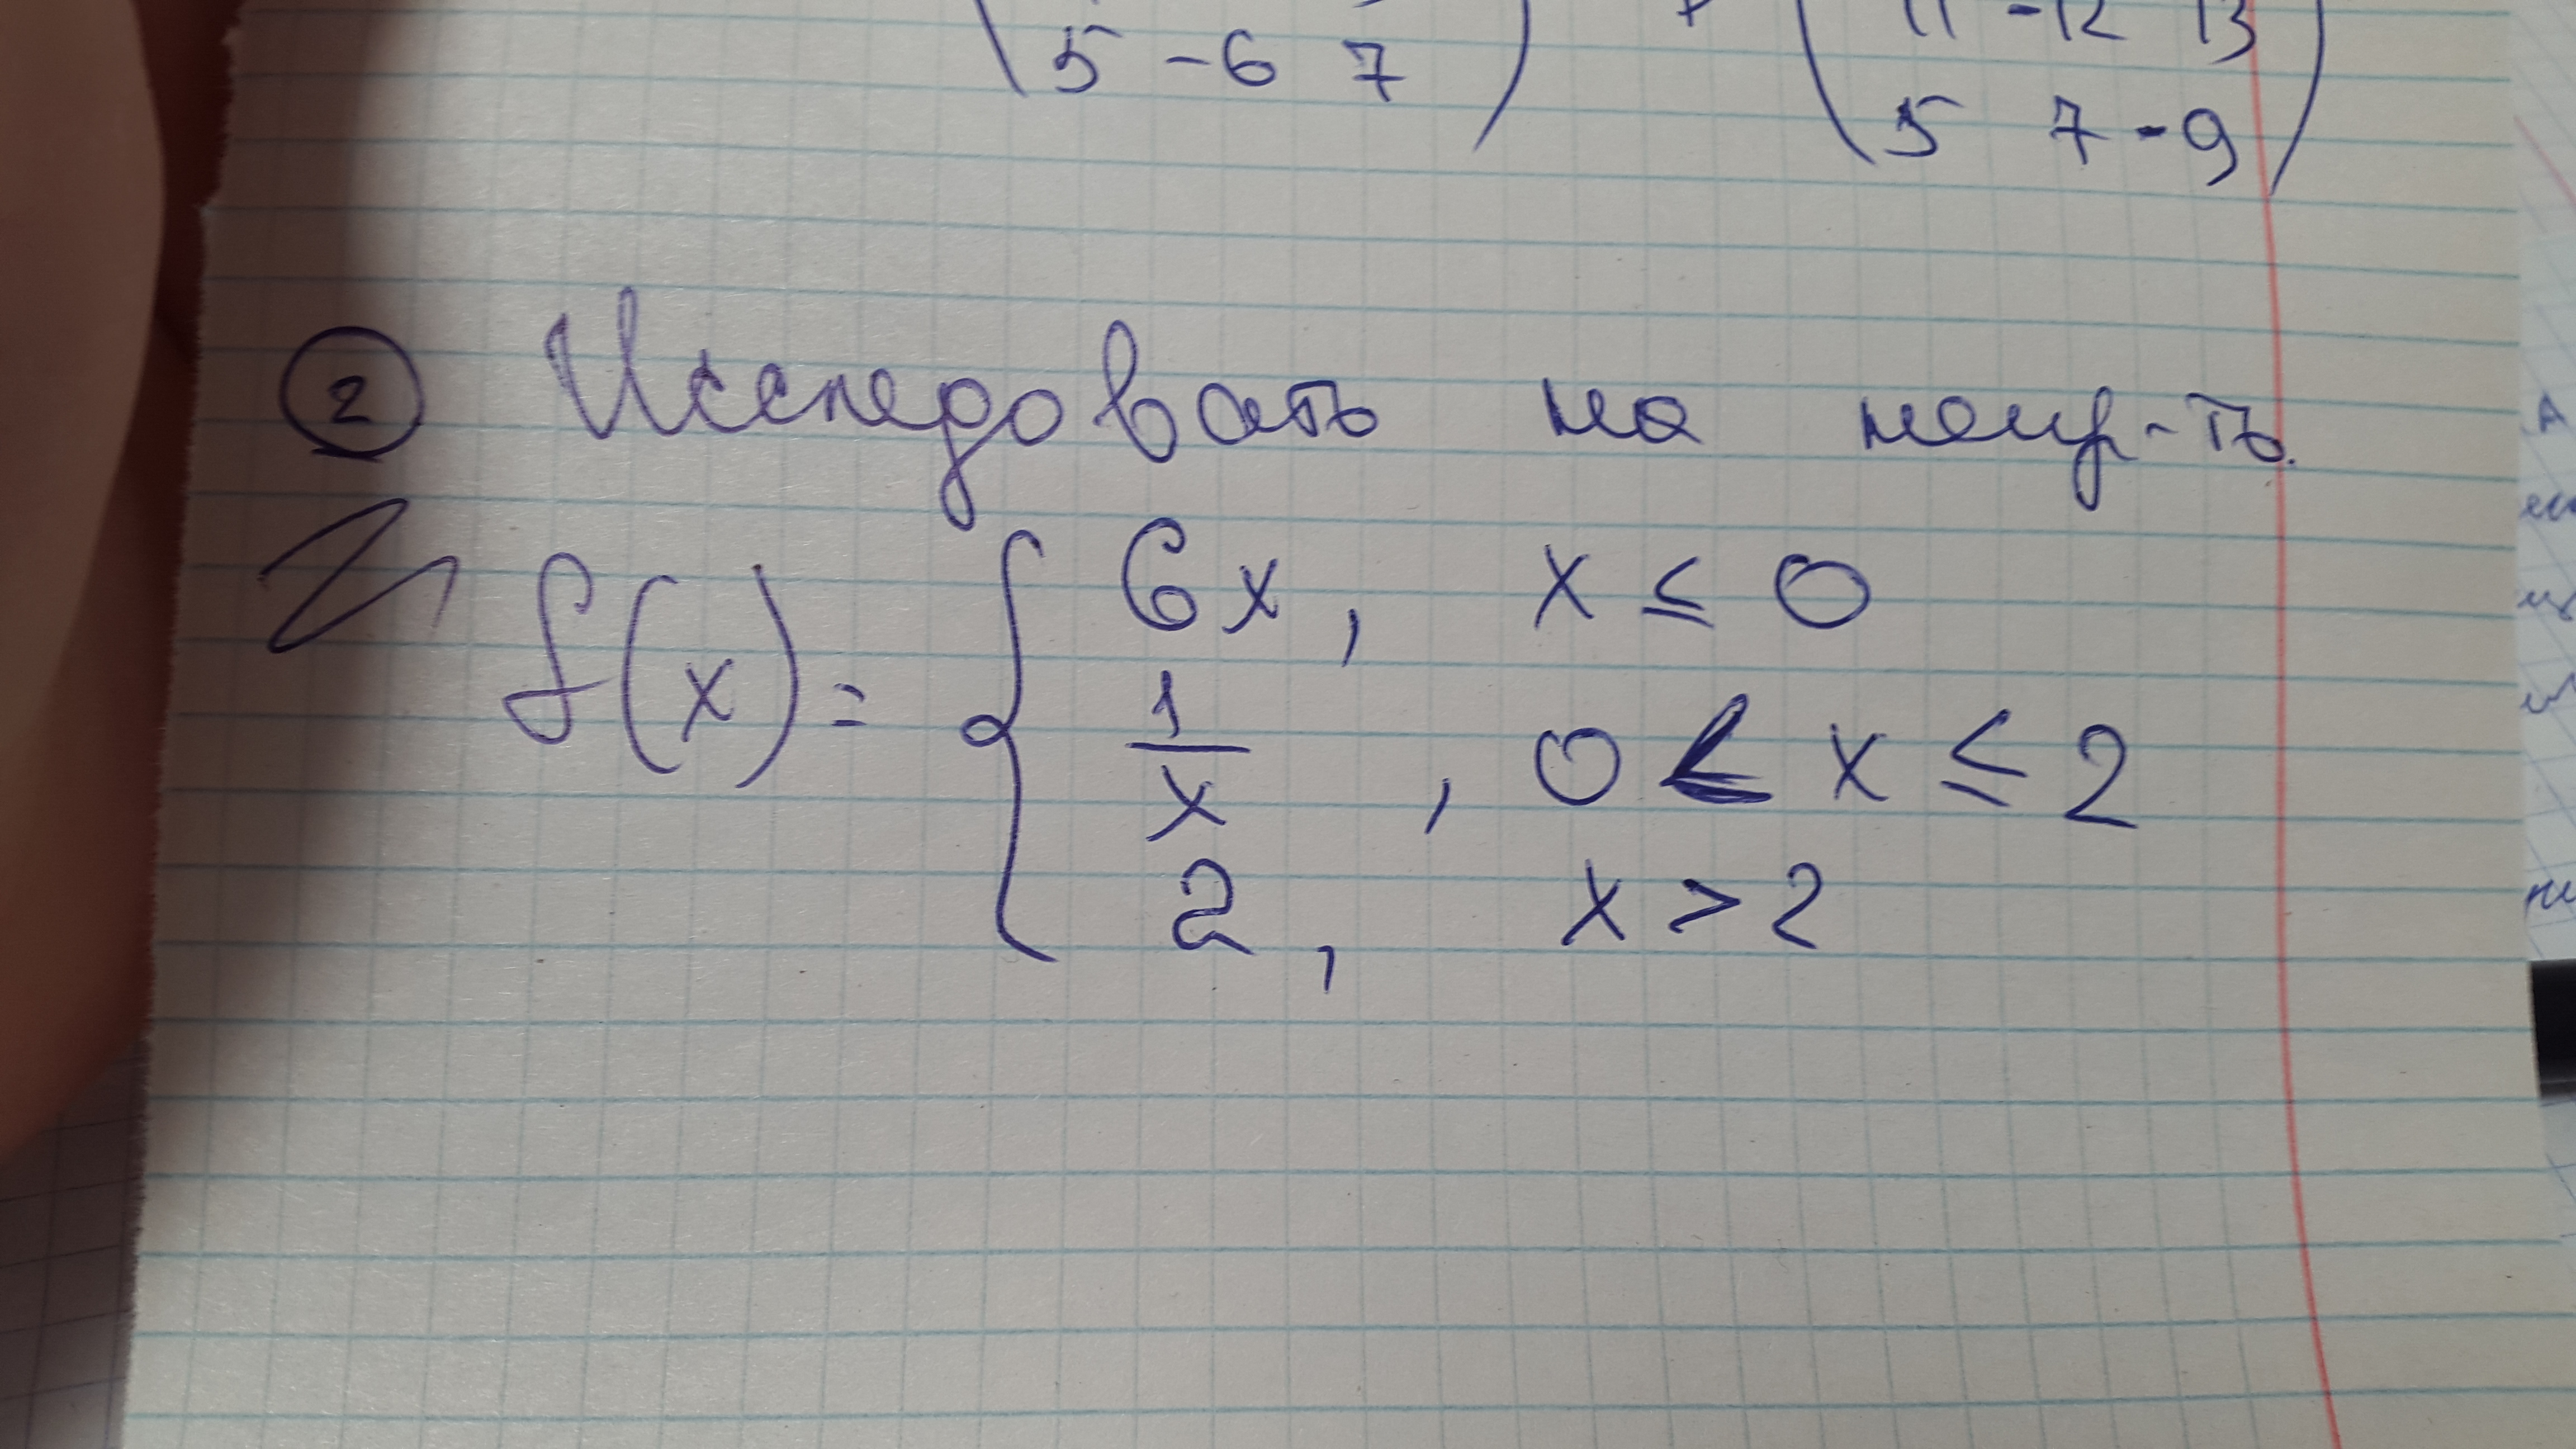 5 -6 7 + 11 -12 13
5 7 -9
② Исследовать на непр-ть.
f(x) = { 6x, x ≤ 0
1/x, 0 < x ≤ 2
2, x > 2